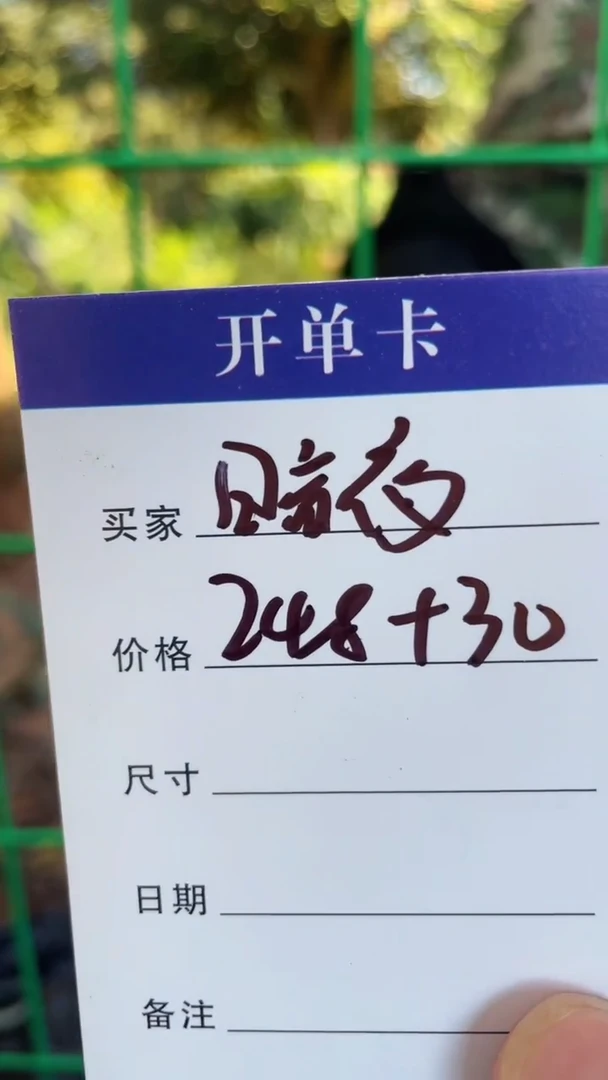 开单卡
买家
价格 248+30
尺寸
日期
备注